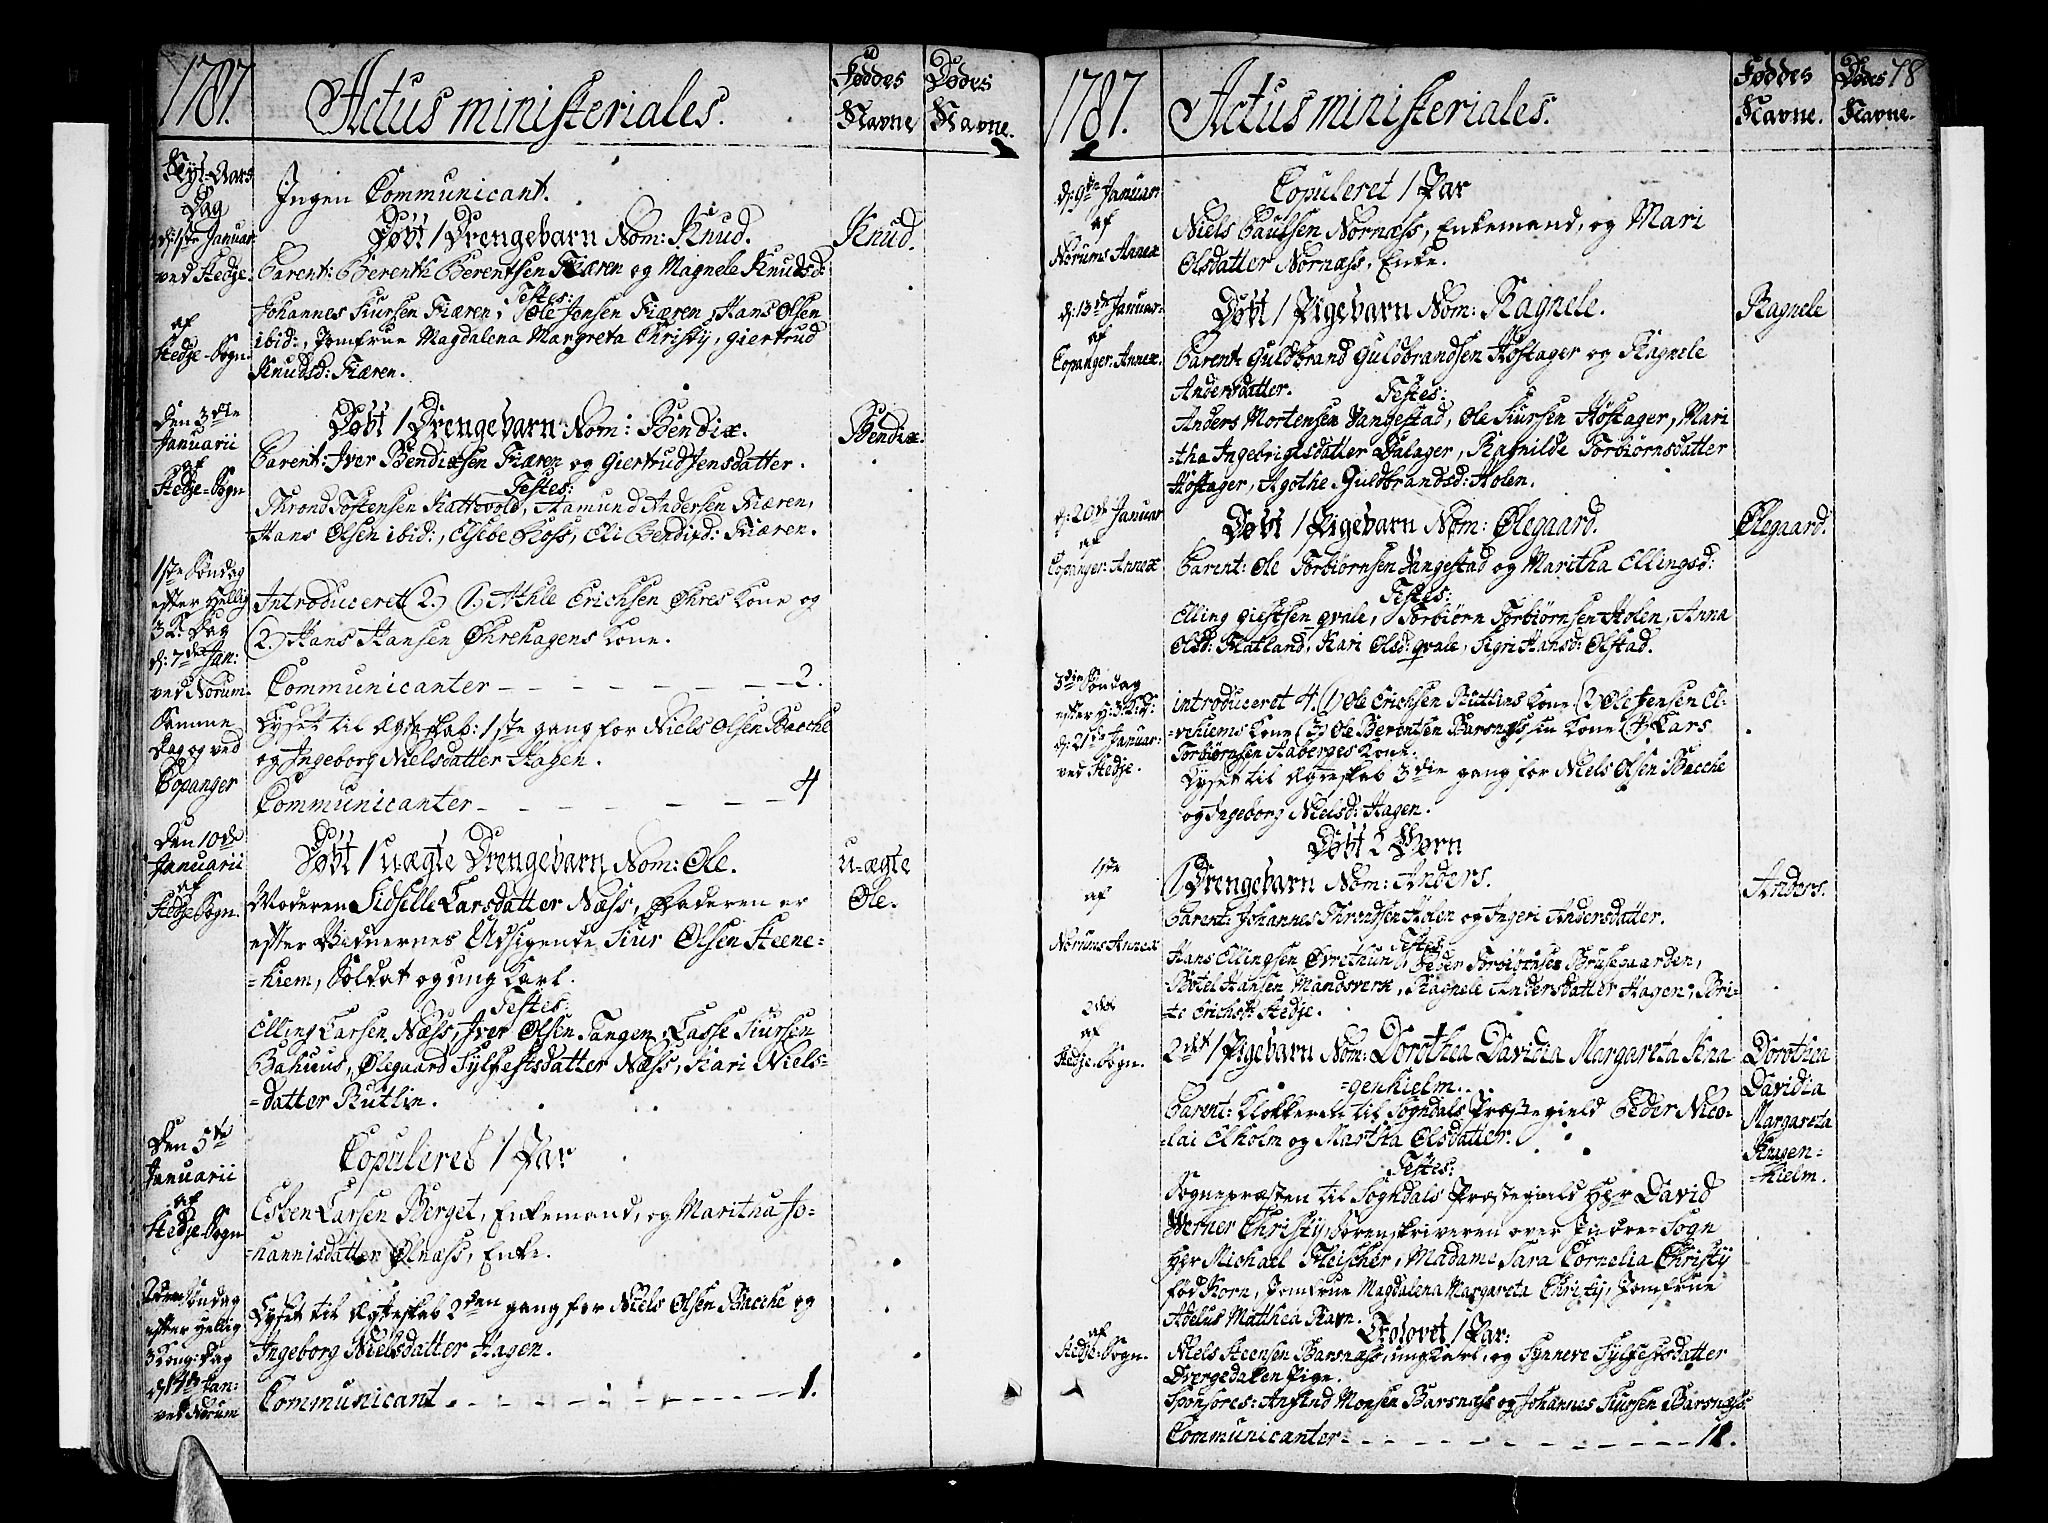 1787.
Actus ministeriales.
Føddes
Navne
Dødes
Navne.
Nyt-Aars
Dag
d: 1ste Januar
ved Stedje
af
Stedje-Sogn
Ingen Communicant.
Døbt 1 Drengebarn Nom: Knud.
Knud.
Parent: Berenth Berentsen Fiæren og Magnele Knudsd:
Testes:
Johannes Siursen Fiæren, Ole Jensen Fiæren, Hans Olsen
ibid:, Jomfrue Magdalena Margreta Christij, Giertrud
Knudsd: Fiæren.
Den 3die
Januarii
af
Stedje-Sogn
Døbt 1 Drengebarn Nom: Bendix.
Bendix.
Parent: Iver Bendixsen Fiæren og Giertrud Jensdatter.
Testes:
Thrond Tostensen Kattevold, Aamund Andersen Fiæren,
Hans Olsen ibid:, Elsebe Ross, Eli Bendixd: Fiæren.
1ste Søndag
efter Hellig
3 K: Dag
d: 7de Jan:
ved Norum
Introduceret (2.) (1.) Athle Erichsen Øhres Kone og
(2.) Hans Hansen Øhrehagens Kone.
Communicanter - - - - - - - 2.
Samme
Dag og ved
Copanger
Lyset til Ægteskab: 1ste gang for Niels Olsen Bacche
og Ingeborg Nielsdatter Hagen.
Communicanter - - - - - - 4
Den 10de
Januarii
af
Stedje Sogn.
Døbt 1 uægte Drengebarn Nom: Ole.
u-ægte
Ole.
Moderen Sidselle Larsdatter Næss, Faderen er
efter Vidnernes Udsigende Siur Olsen Steene-
-hiem, Soldat og ung Karl.
Testes:
Elling Larsen Næss, Iver Olsen Tangen, Lasse Siursen
Bahuus, Ølegaard Sylfestsdatter Næss, Kari Niels-
-datter Rutlin.
Den 5te
Januarii
af
Stedje Sogn
Copuleret 1 Par
Esben Larsen Berget, Enkemand, og Maritha Jo-
-hannisdatter Ølnæss, Enke.
2den Søndag
efter Hellig
3 Kong: Dag
d: 14de Jan:
ved Norum
Lyset til Ægteskab 2den gang for Niels Olsen Bacche og
Ingeborg Nielsdatter Hagen.
Communicant - - - - - - - 1.
1787.
Actus ministeriales.
Føddes
Navne.
Dødes
Navne.
78
d: 9de Januar
af
Norums Annex
Copuleret 1 Par
Niels Paulsen Nornæss, Enkemand, og Mari
Olsdatter Nornæss, Enke.
d: 13de Januar:
af
Copanger-Annex.
Døbt 1 Pigebarn Nom: Ragnele.
Ragnele
Parent: Guldbrand Guldbrandsen Høstager og Ragnele
Andersdatter.
Testes:
Anders Mortensen Vangestad, Ole Siursen Høstager, Mari
-tha Ingebrigtsdatter Dalager, Ragnilde Torbiørnsdatter
Høstager, Agothe Guldbrandsd: Holen.
d: 20de Januar
af
Copanger-Annex
Døbt 1 Pigebarn Nom: Ølegaard.
Ølegaard.
Parent: Ole Torbiørnsen Vangestad og Maritha Ellingsd:
Testes:
Elling Giestsen Qvale, Torbiørn Torbiørnsen Holen, Anna
Olsd: Flatland, Kari Olsd: Qvale, Sigri Hansd: Ølstad.
3die Søndag
efter H: 3: K: D:
d: 21de Januar:
ved Stedje.
introduceret 4. (1) Ole Erichsen Ruttlins Kone (2) Ole Jensen El-
-vehiems Kone (3) Ole Berentsen Barsnæss, in Kone (4) Lars
Torbiørnsen Aaberges Kone.
Lyset til Ægteskab 3die gang for Niels Olsen Bacche
og Ingeborg Nielsd: Hagen.
Døbt 2 Børn
1ste
af
Norums Annex
1 Drengebarn Nom: Anders.
Anders.
Parent: Johannes Throndsen Holen og Ingeri Andersdatter.
Testes:
Hans Ellingsen Øvrethun, Peder Torbiørnsen Brusegaarden,
Botel Hansen Mandsverk, Ragnele Andersdatter Hagen, Bri-
-te Erichsd: Stedje.
2det
af
Stedje-Sogn.
2det 1 Pigebarn Nom: Dorothea Davidia Margareta Kna
-genhielm.
Dorothea
Davidia
Margareta
Knagen-
-hielm.
Parent: Klokkeren til Sogndals Præstegield Peder Nico-
-lai Elholm og Martha Olsdatter.
Testes:
Sognepræsten til Soghdals Præstegield Hr: David
Werner Christij, Sorenskriveren over Indre-Sogn
Hr Michael Fleischer, Madame Sara Cornelia Christij
fød Korn, Jomfrue Magdalena Margareta Christij, Jomfrue
Adelus Matthea Ravn.
af
Stedje-Sogn.
Trolovet 1 Par:
Niels Steensen Barsnæss, ung Karl, og Synneve Sylfestsdatter
Dvergedalen Pige.
Sponsores: Anfind Monsen Barsnæss og Johannes Siursen Barsnæss.
Communicanter - - - - - - - - 11.